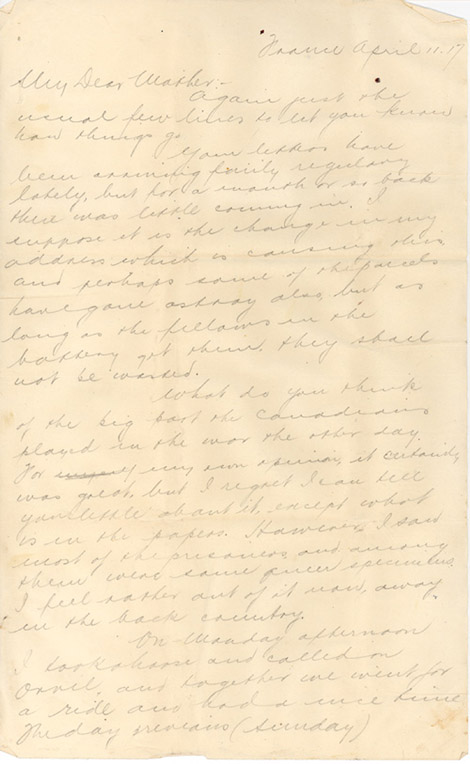 France April 11. 17
My Dear Mother:-
Again just the
usual few lines to let you know
how things go
Your letters have
been arriving fairly regularly
lately, but for a month or so back
there was little coming in. I
suppose it is the change in my
address which is causing this
and perhaps some of the parcels
have gone astray also, but as
long as the fellows in the
battery get them, they shall
not be wasted.
What do you think
of the big part the Canadians
played in the war the other day
For my own opinion, it certainly
was great, but I regret I can tell
you little about it except what
is in the papers. However, I saw
most of the prisoners and among
them were some queer specimens.
I feel rather out of it now, away
in the back country.
On Monday afternoon
I took a horse and called on
Orvil, and together we went for
a ride and had a nice time
The day previous (Sunday)